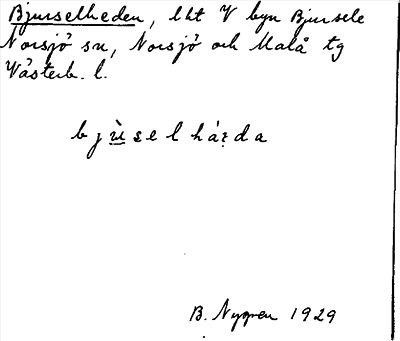 Bjurselheden, lht V byn Bjursele
Norsjö sn, Norsjö och Malå tg
Västerb. l.
B. Nygren 1929